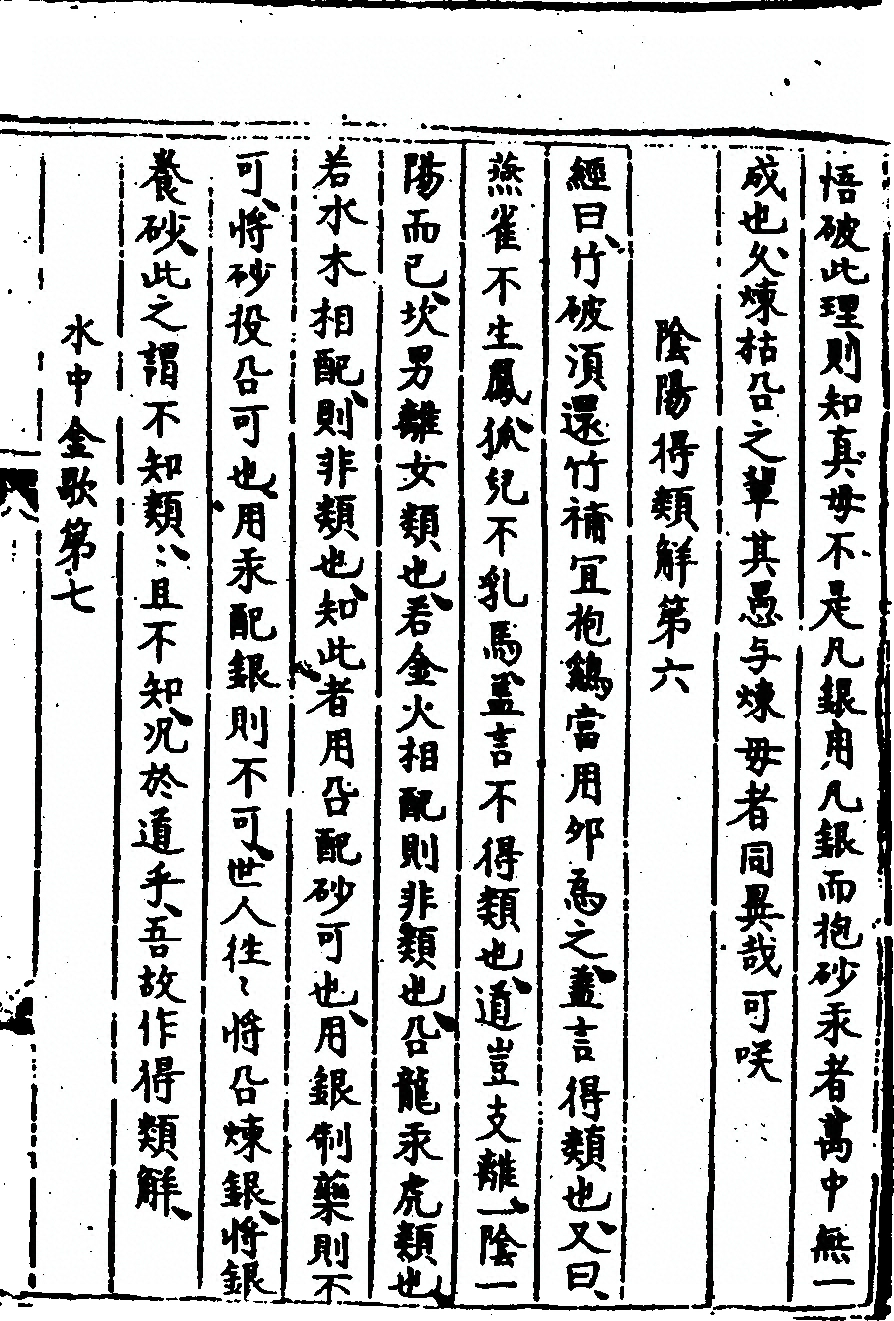 悟破此理則知真母不是凡銀用凡銀而抱砂汞者萬中無一
成也久煉枯㕣之輩其愚与煉母者同異哉可咲
陰陽得類解第六
經曰、竹破須還竹補宜抱鷄當用卵為之、蓋言得類也、又曰、
燕雀不生鳳、狐兒不乳馬、蓋言不得類也、道豈支離、一陰一
陽而已、坎男離女類也、若金火相配則非類也、㕣龍汞虎類也
若水木相配、則非類也、知此者用㕣配砂可也、用銀制藥則不
可、將砂投㕣可也、用汞配銀則不可、世人徃〻將㕣煉銀、將銀
養砂、此之謂不知類、〻且不知、况於道乎、吾故作得類解、
水中金歌第七
八